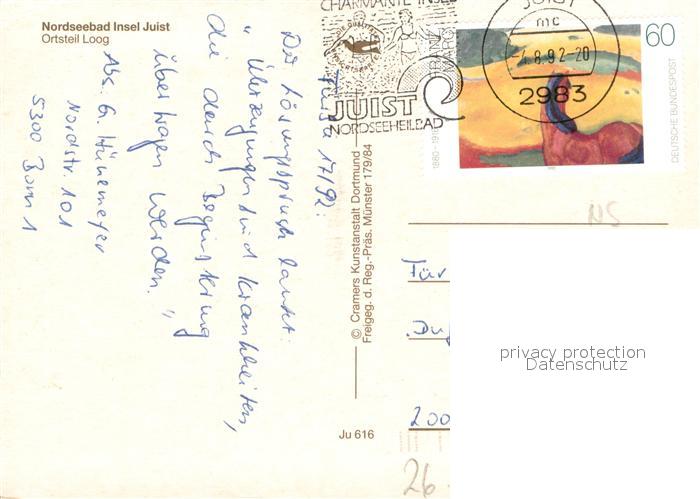 Nordseebad Insel Juist
Ortsteil Loog
CHARMANTE INSEL
JUIST
NORDSEEHEILBAD
JUIST
mc
-4.8.92-20
2983
60
DEUTSCHE BUNDESPOST
FRANZ MARC
1880-1916
17/92:
Der Lösungsspruch lautet:
„Überzeugungen sind Krankheiten,
die durch Begeisterung
übertragen werden."
Abs. G. Hünemeyer
Nordstr. 101
5300 Bonn 1
© Cramers Kunstanstalt Dortmund
Freigeg. d. Reg.-Präs. Münster 179/84
Ju 616
NS
Für
200
26
privacy protection
Datenschutz